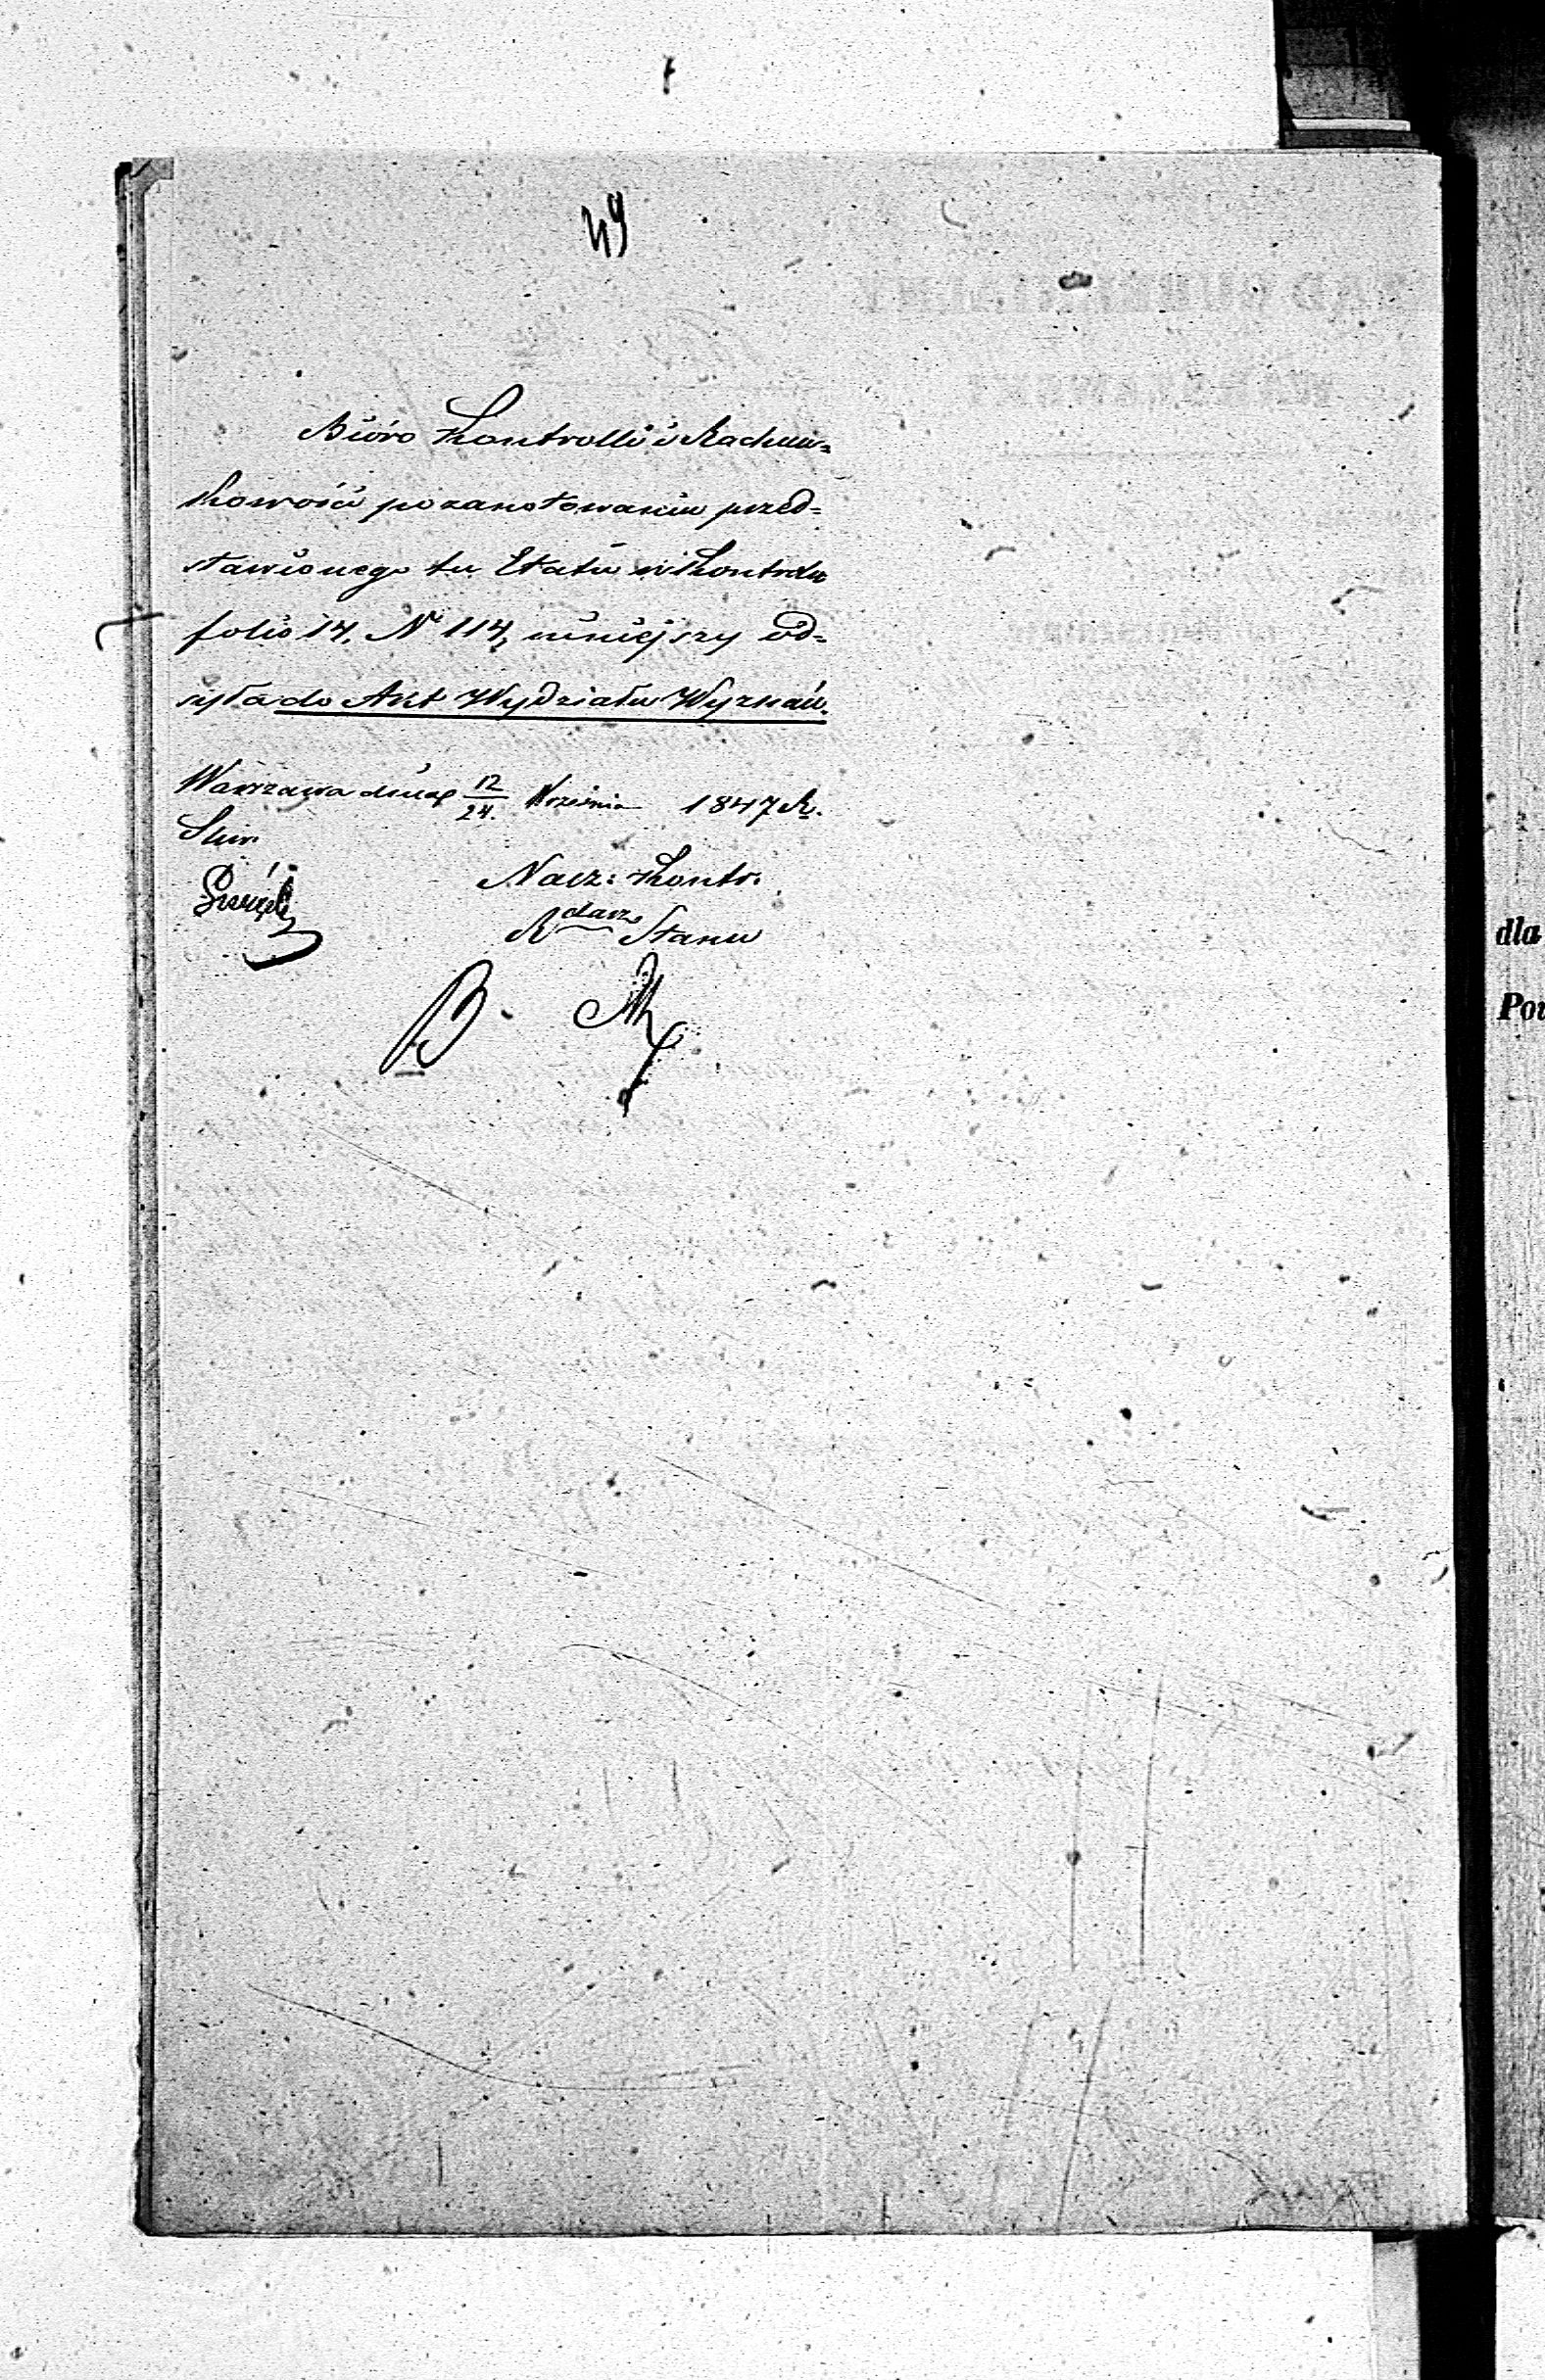 49
Bióro Kontrolli i Rachun=
kowości po zanotowaniu przed=
stawionego tu Etatu w Kontroli
folio 14. N 114, niniejszy od=
syła do Akt Wydziału Wyznań.
Warszawa dnia 12/24. Września 1847 R.
Nacz: Kontr.
Rdarz Stanu
B.
dla
Pow